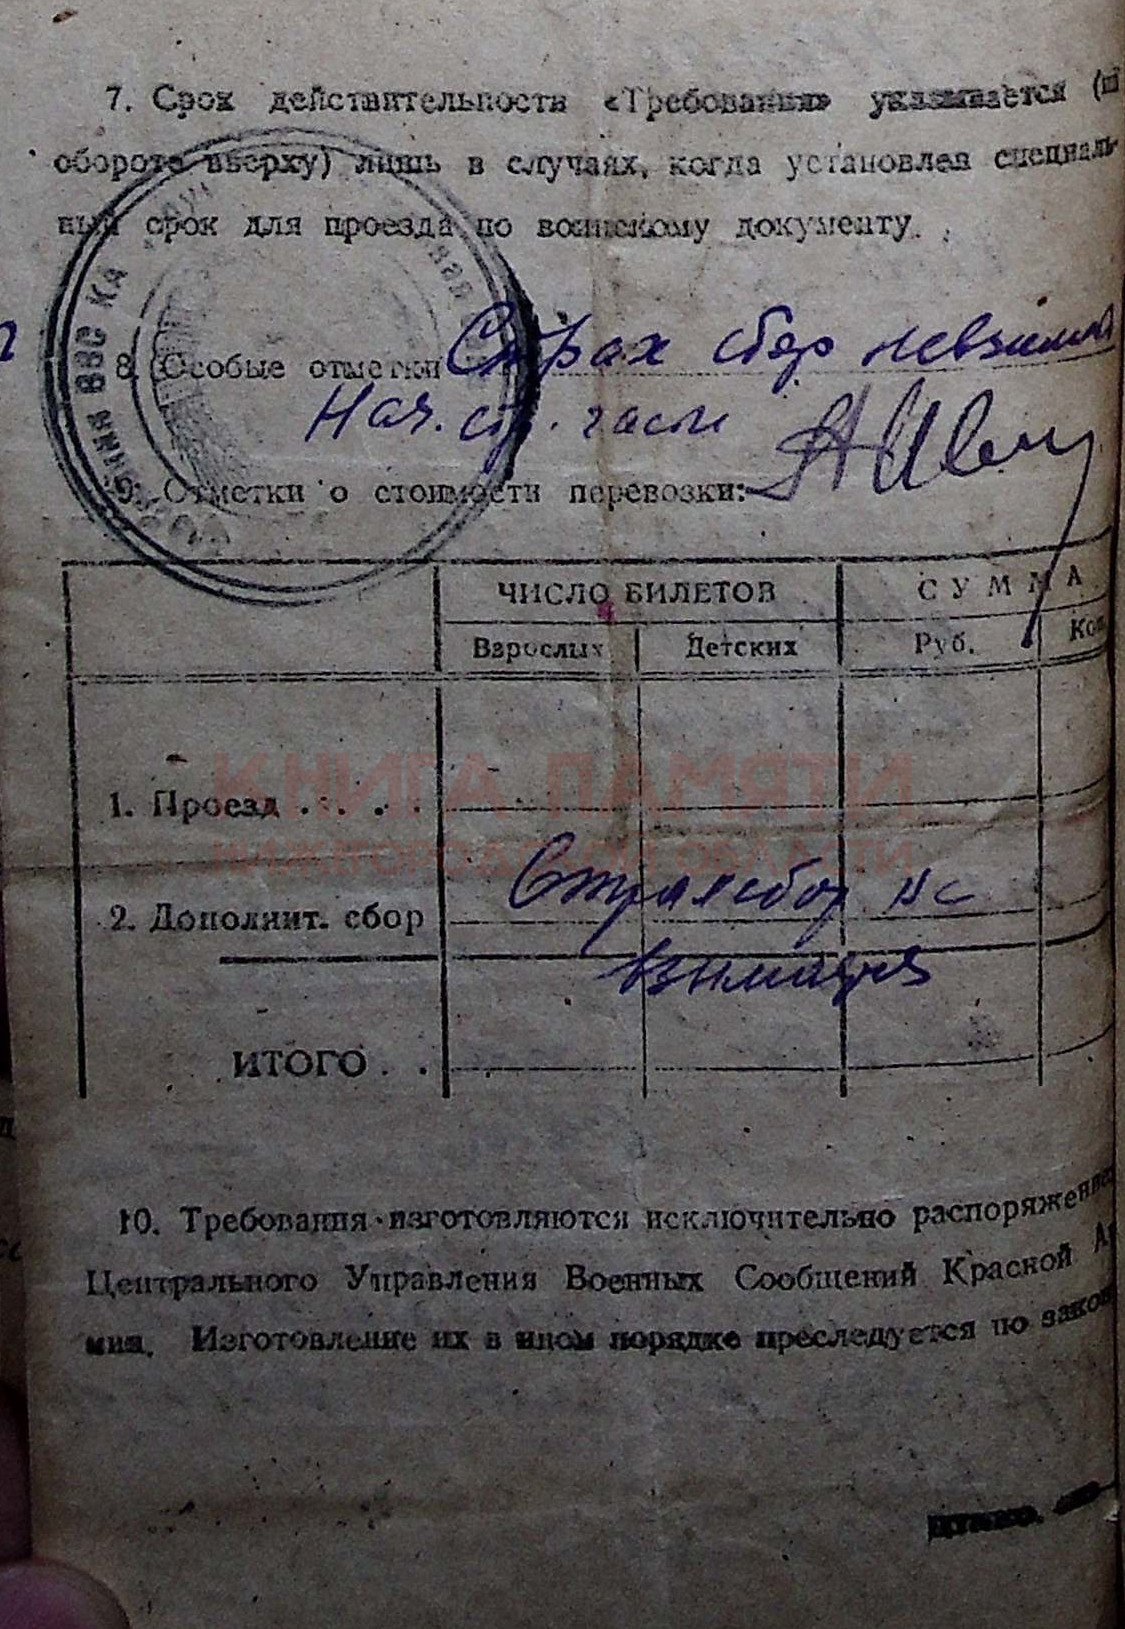 7. Срок действительности «Требования» указывается (
обороте вверху) лишь в случаях, когда установлен специаль-
ный срок для проезда по воинскому документу.
ВВС КА
8. Особые отметки Страх сбор невзимал
Нач. стр. части
9. Отметки о стоимости перевозки:
ЧИСЛО БИЛЕТОВ СУММА
Взрослых Детских Руб. Коп
КНИГА ПАМЯТИ
1. Проезд . . . .
НИЖЕГОРОДСКОЙ ОБЛАСТИ
2. Дополнит. сбор Страхсбор не
взимался
ИТОГО . .
10. Требования изготовляются исключительно распоряжение
Центрального Управления Военных Сообщений Красной Ар
мии. Изготовление их в ином порядке преследуется по закон